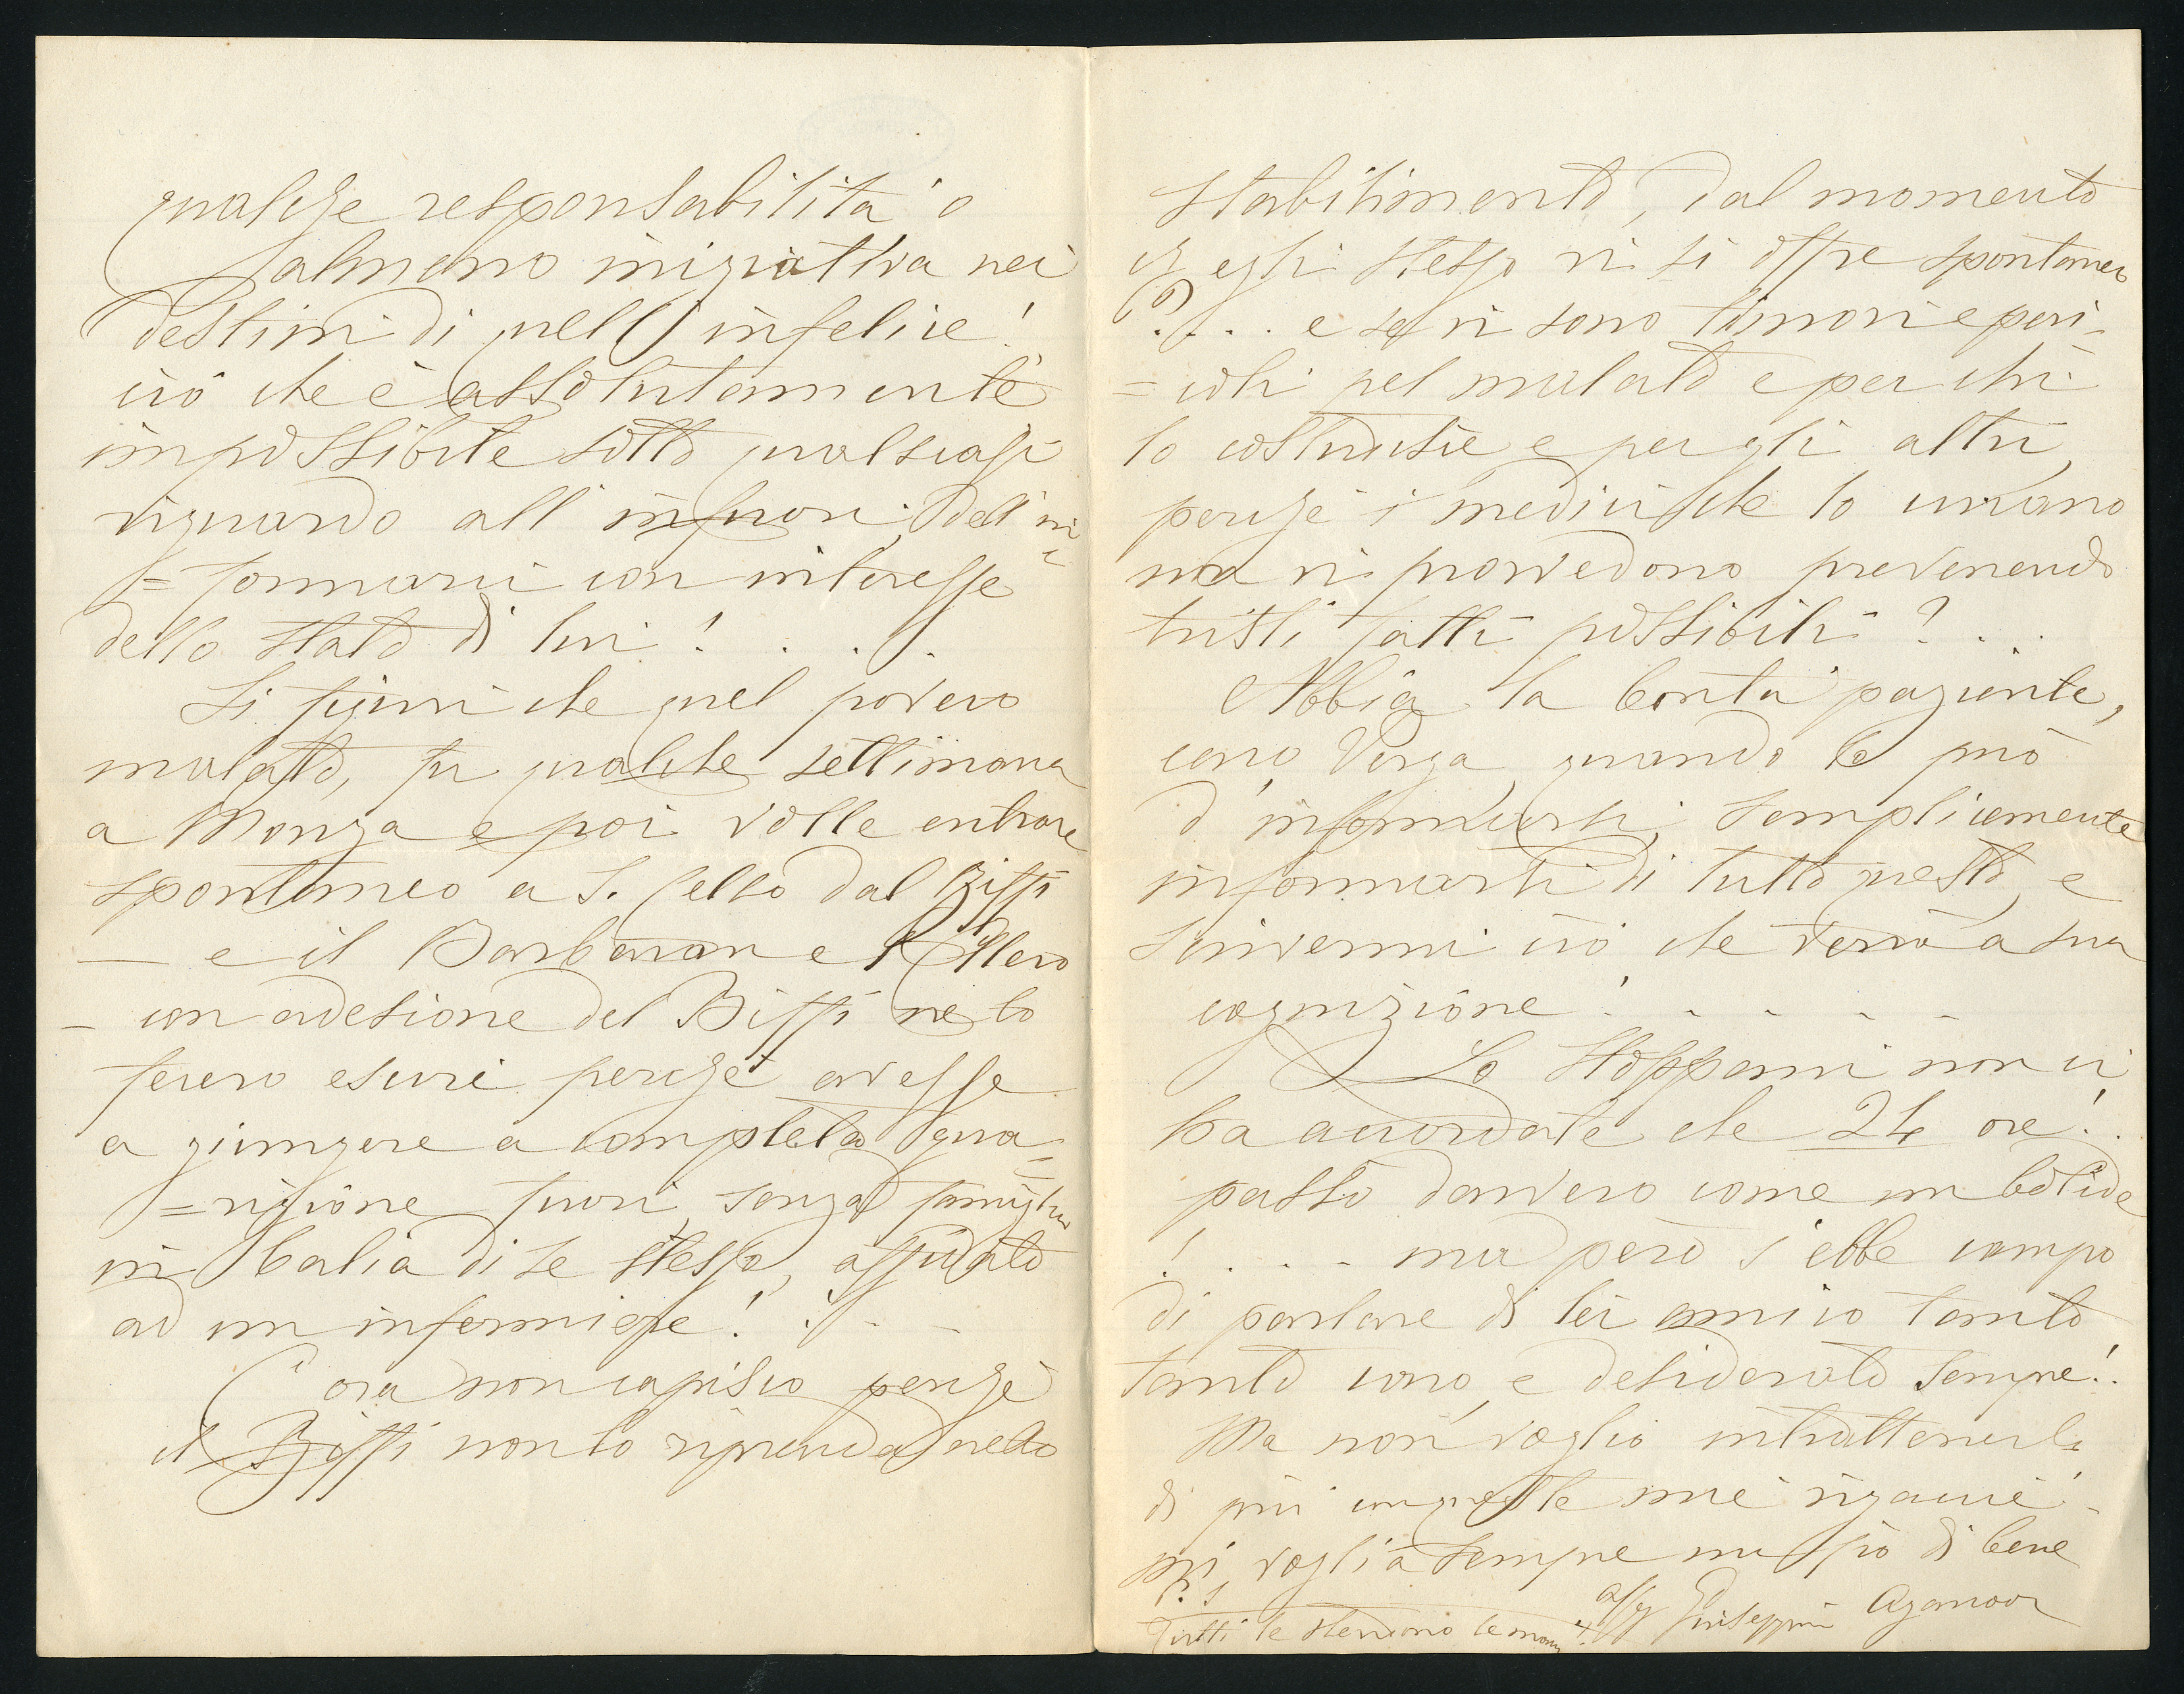 qualche responsabilità o
almeno iniziativa nei
destini di quell'infelice!
ciò che è assolutamente
impossibile sotto qualsiasi
riguardo all'infuori dell'in
=formarci con interesse
dello stato di lui! . . . .
Si figuri che quel povero
malato, fu qualche settimana
a Monza e poi volle entrare
spontaneo a S. Celso dal Biffi
— e il Barbavara e
— con adesione del Biffi ne lo
fecero escire perché avesse
a giungere a completa gua=
=rigione fuori, senza famiglia
in balia di se stesso, affidato
ad un infermiere! . . - -
E ora non capisco perché
il Biffi non lo riprenda nello
stabilimento, dal momento
ch'egli stesso vi si offre spontaneo
? . . . e se vi sono timori e peri=
=coli pel malato e per chi
lo costudisce e per gli altri,
perché i medici che lo curano
non vi provvedono prevenendo
tristi fatti possibili? . . .
Abbia la bontà paziente,
caro Verga, quando le può
d'informarsi, semplicemente
informarsi di tutto questo, e
scrivermi ciò che verrà a sua
cognizione! - - - - -
Lo Stoppani non ci
ha accordate che 24 ore! .
passò davvero come un bolide
! . . - - ma però s'ebbe campo
di parlare di lei amico tanto
tanto caro, e desiderato sempre! .
Ma non voglio intrattenerla
di più con queste mie rigacce -
mi voglia sempre un pò di bene
affz Giuseppina Aganoor
P.S.
Tutti le stendono le mani